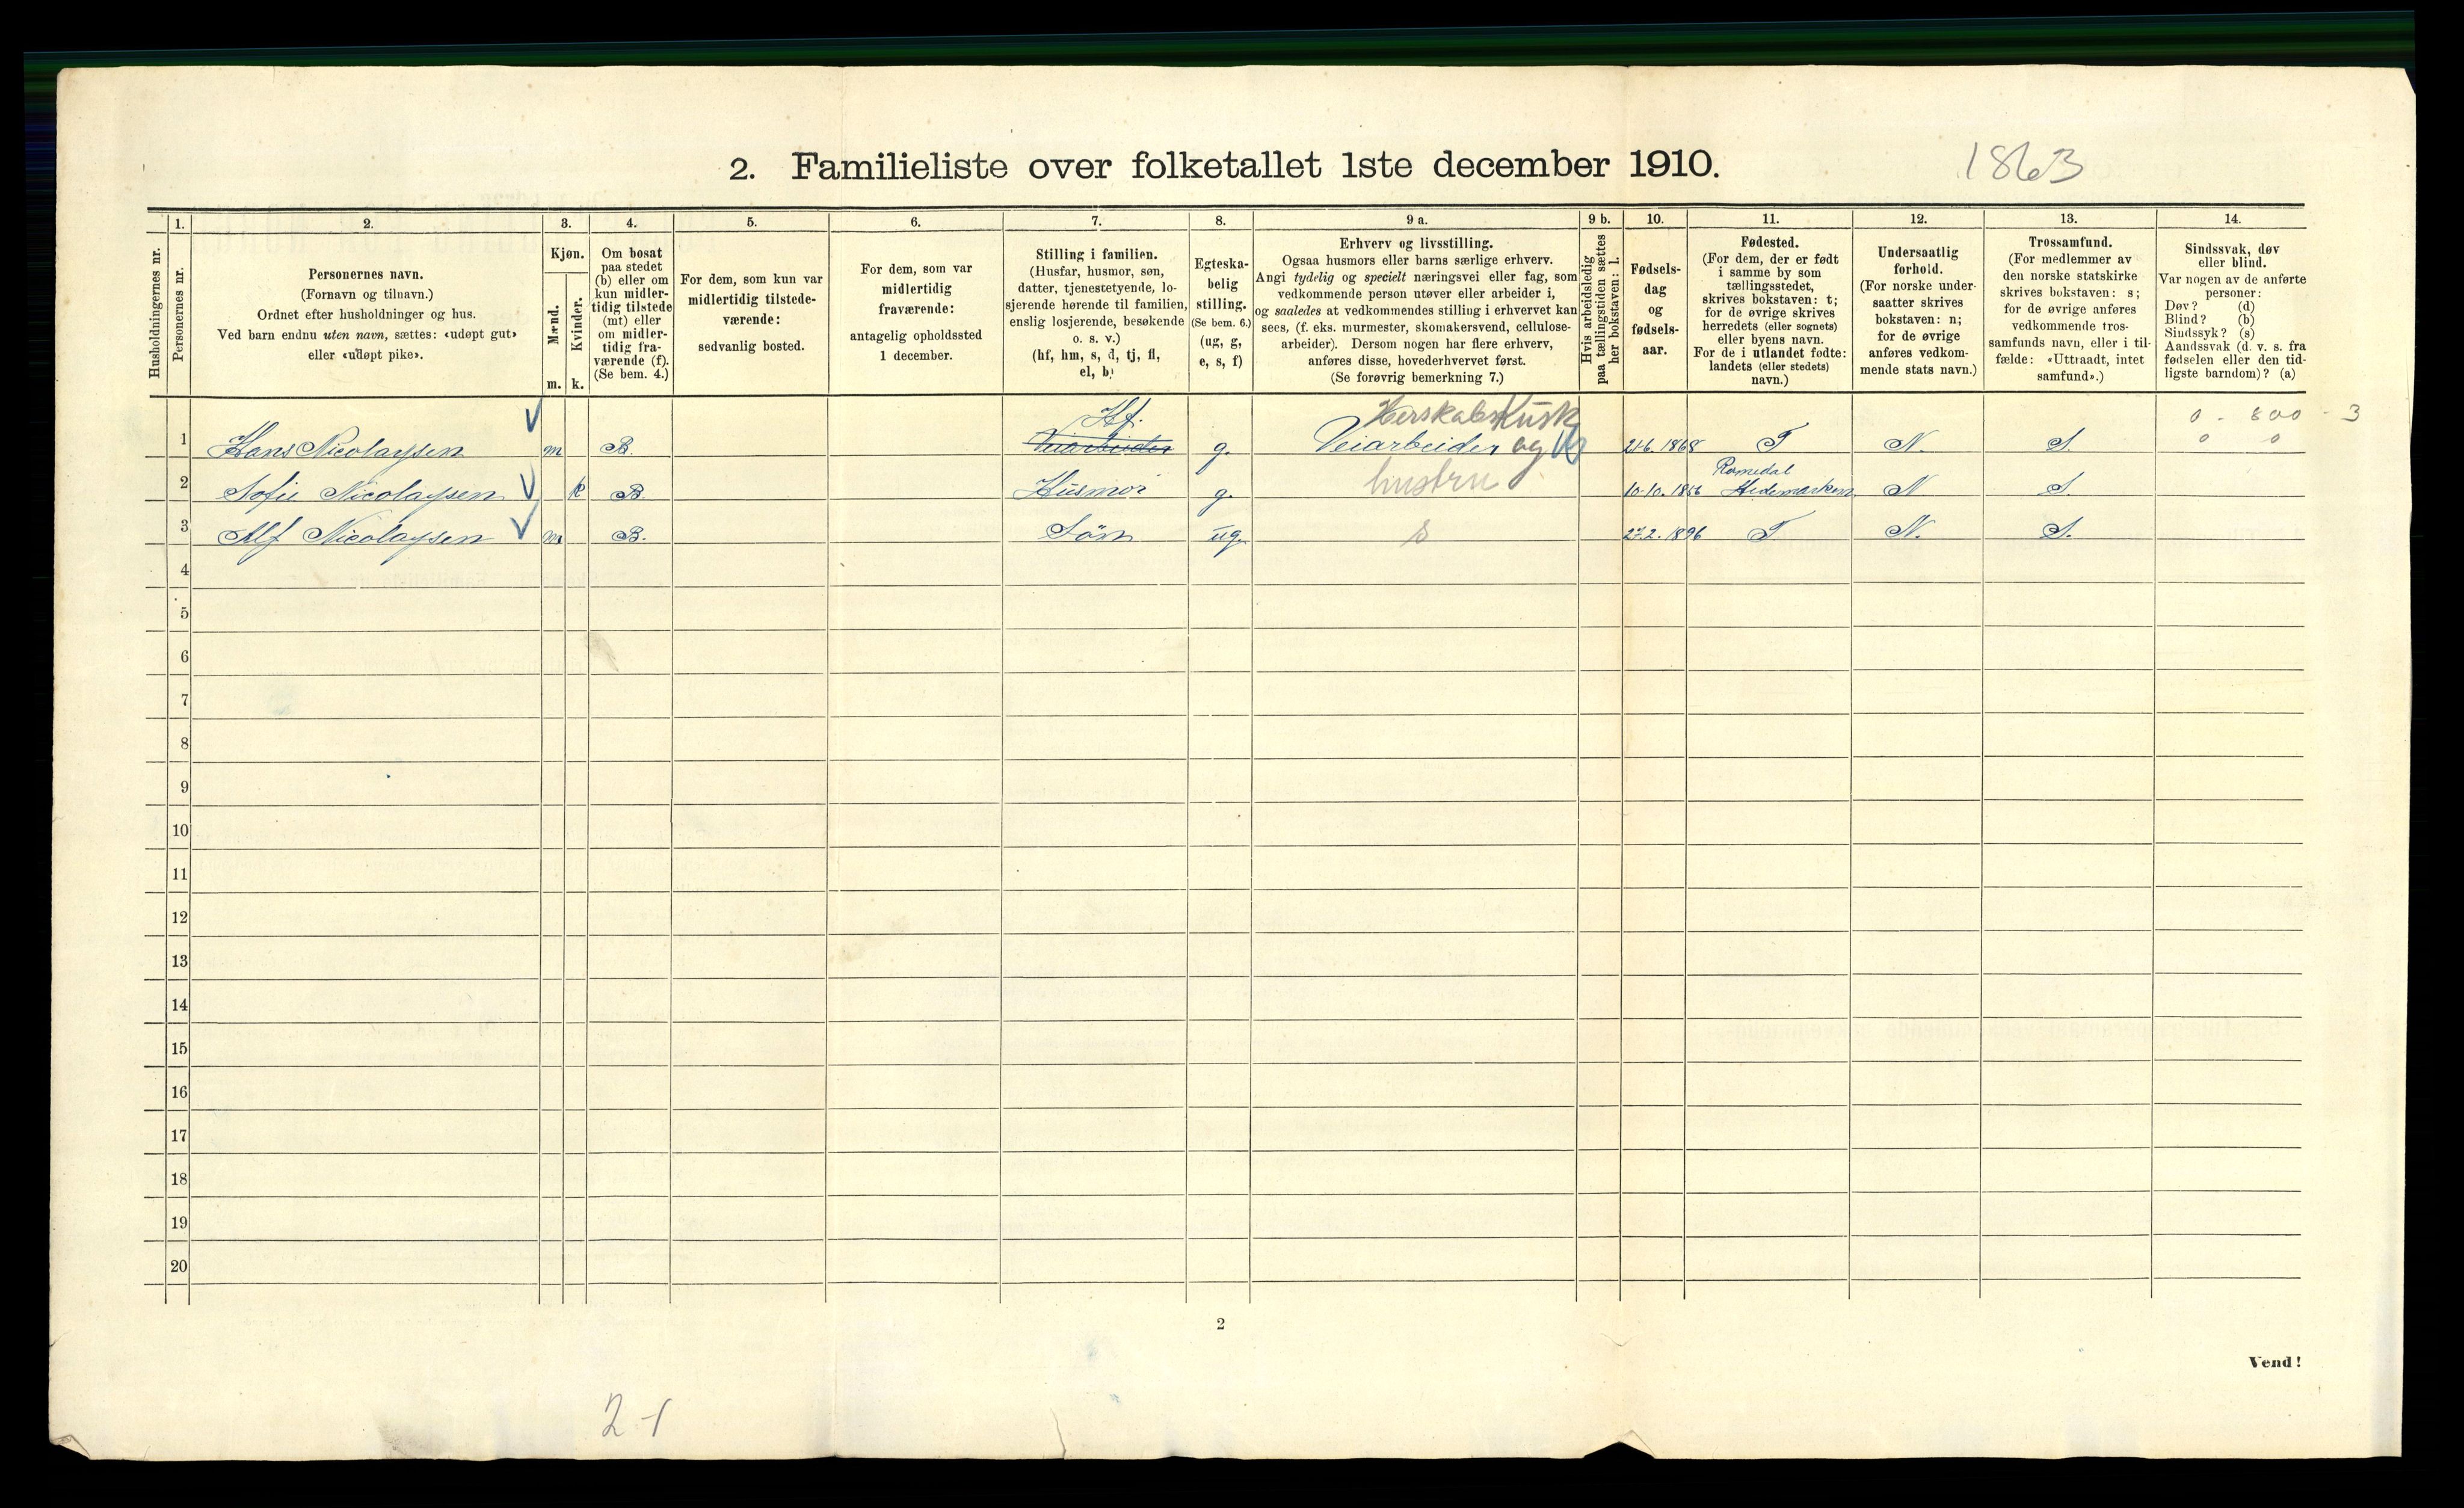 2. Familieliste over folketallet 1ste december 1910.
1863
Husholdningernes nr.
1.
Personernes nr.
2.
Personernes navn.
(Fornavn og tilnavn.)
Ordnet efter husholdninger og hus.
Ved barn endnu uten navn, sættes: «udøpt gut»
eller «udøpt pike».
3.
Kjøn.
Mænd.
m.
Kvinder.
k.
4.
Om bosat
paa stedet
(b) eller om
kun midler-
tidig tilstede
(mt) eller
om midler-
tidig fra-
værende (f).
(Se bem. 4.)
5.
For dem, som kun var
midlertidig tilstede-
værende:
sedvanlig bosted.
6.
For dem, som var
midlertidig
fraværende:
antagelig opholdssted
1 december.
7.
Stilling i familien.
(Husfar, husmor, søn,
datter, tjenestetyende, lo-
sjerende hørende til familien,
enslig losjerende, besøkende
o. s. v.)
(hf, hm, s, d, tj, fl,
el, b)
8.
Egteska-
belig
stilling.
(Se bem. 6.)
(ug, g,
e, s, f)
9 a.
Erhverv og livsstilling.
Ogsaa husmors eller barns særlige erhverv.
Angi tydelig og specielt næringsvei eller fag, som
vedkommende person utøver eller arbeider i,
og saaledes at vedkommendes stilling i erhvervet kan
sees, (f. eks. murmester, skomakersvend, cellulose-
arbeider). Dersom nogen har flere erhverv,
anføres disse, hovederhvervet først.
(Se forøvrig bemerkning 7.)
9 b.
Hvis arbeidsledig
paa tællingstiden sættes
her bokstaven: l.
10.
Fødsels-
dag
og
fødsels-
aar.
11.
Fødested.
(For dem, der er født
i samme by som
tællingsstedet,
skrives bokstaven: t;
for de øvrige skrives
herredets (eller sognets)
eller byens navn.
For de i utlandet fødte:
landets (eller stedets)
navn.)
12.
Undersaatlig
forhold.
(For norske under-
saatter skrives
bokstaven: n;
for de øvrige
anføres vedkom-
mende stats navn.)
13.
Trossamfund.
(For medlemmer av
den norske statskirke
skrives bokstaven: s;
for de øvrige anføres
vedkommende tros-
samfunds navn, eller i til-
fælde: «Uttraadt, intet
samfund».)
14.
Sindssvak, døv
eller blind.
Var nogen av de anførte
personer:
Døv? (d)
Blind? (b)
Sindssyk? (s)
Aandssvak (d. v. s. fra
fødselen eller den tid-
ligste barndom)? (a)
Hf. Herskabskusk 0 - 800 - 3
1 Hans Nicolaysen m B. Veiarbeider g. Veiarbeider og 21.6.1868 T N. S. 0 0
Romedal
2 Sofie Nicolaysen k B. Husmor g. hustru 10.10.1856 Hedemarken N S.
3 Alf Nicolaysen m B. Søn ug. s 27.2.1896 T N. S.
4
5
6
7
8
9
10
11
12
13
14
15
16
17
18
19
20
2
Vend!
2-1